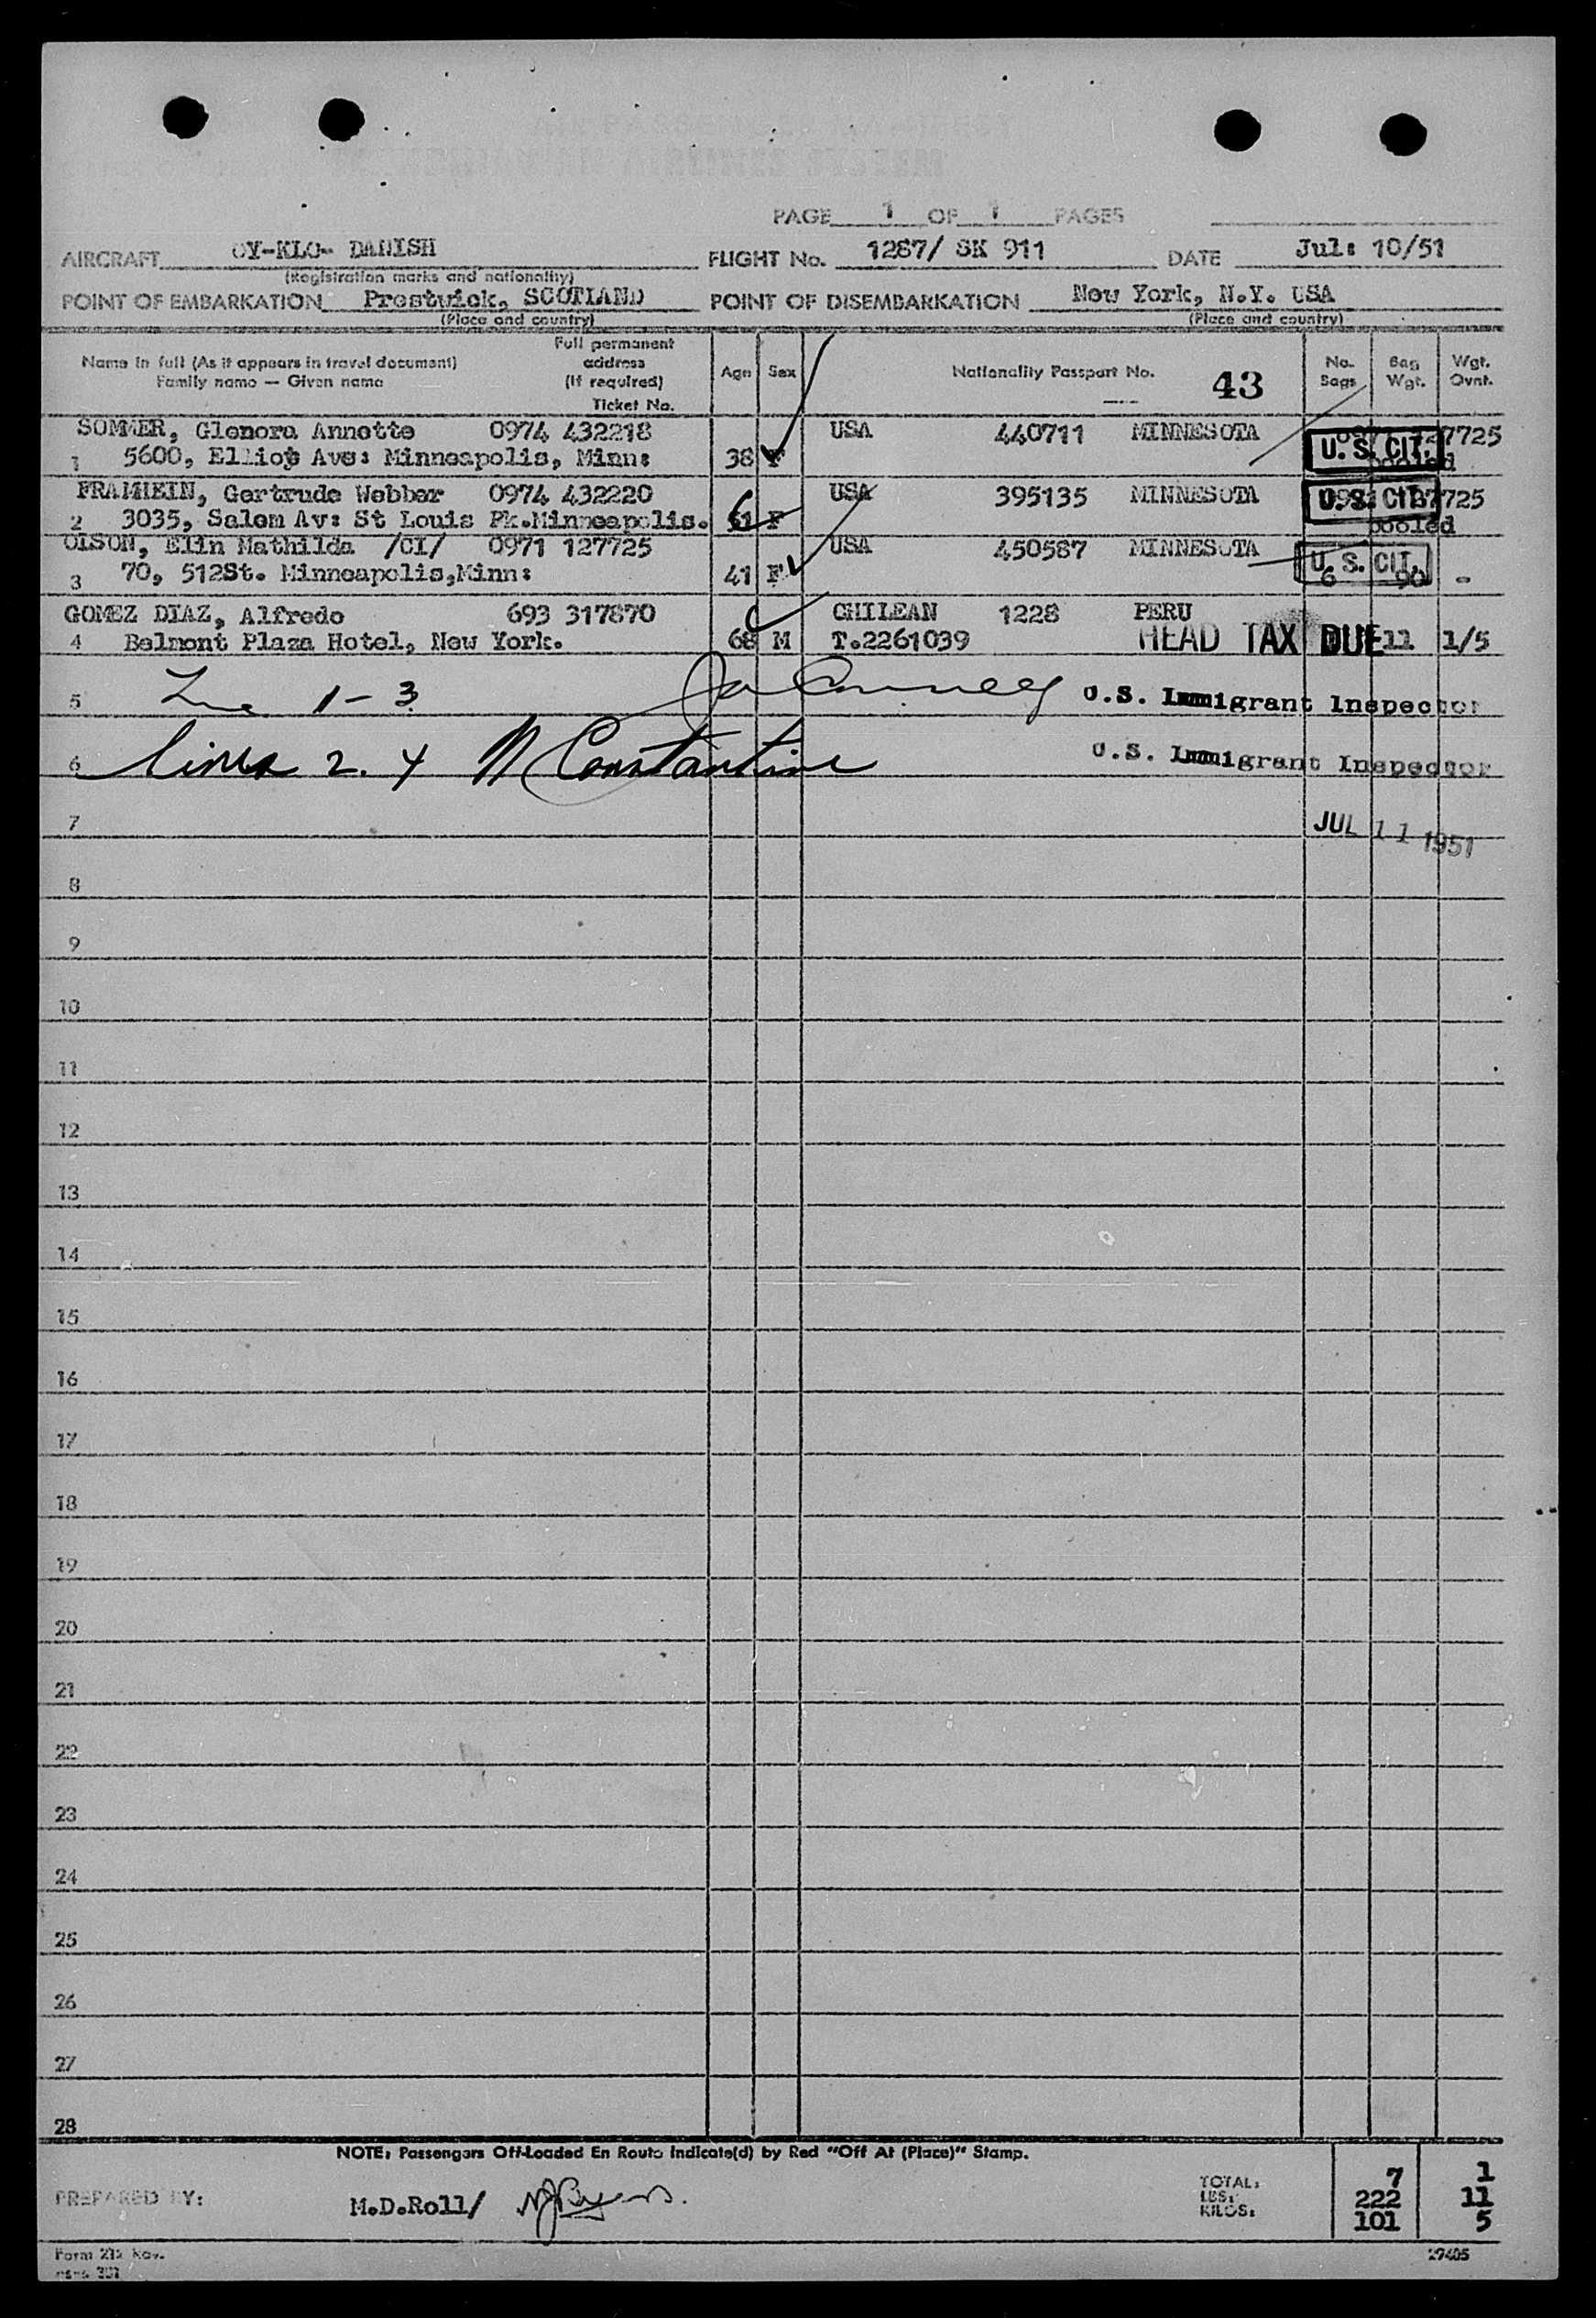 PAGE 1 OF 1 PAGES
AIRCRAFT OY-KLO- DANISH FLIGHT No. 1287/ SK 911 DATE Jul: 10/51
(Registration marks and nationality)
POINT OF EMBARKATION Prestwick, SCOTLAND POINT OF DISEMBARKATION New York, N.Y. USA
(Place and country) (Place and country)
Name in full (As it appears in travel document)
Family name — Given name
Full permanent
address
(If required)
Ticket No.
Age Sex Nationality Passport No. 43
No.
Bags
Bag
Wgt.
Wgt.
Ovnt.
SOMMER, Glenora Annette 0974 432218 USA 440711 MINNESOTA 7725
1 5600, Elliot Ave: Minneapolis, Minn: 38 F U. S. CIT. pooled
Gertrude Webber 0974 432220 USA 395135 MINNESOTA U. S. CIT. 7725
2 3035, Salem Av: St Louis Pk.Minneapolis. 51 F pooled
OLSON, Elin Mathilda /CI/ 0971 127725 USA 450587 MINNESOTA U. S. CIT.
3 70, 512St. Minneapolis,Minn: 41 F 6 90 -
GOMEZ DIAZ, Alfredo 693 317870 CHILEAN 1228 PERU
4 Belmont Plaza Hotel, New York. 68 M T.2261039 HEAD TAX DUE 11 1/5
5 1-3 U.S. Immigrant Inspector
6 lines 2. 4 N Constantine U.S. Immigrant Inspector
7 JUL 11 1951
8
9
10
11
12
13
14
15
16
17
18
19
20
21
22
23
24
25
26
27
28
NOTE: Passengers Off-Loaded En Route Indicate(d) by Red "Off At (Place)" Stamp.
PREPARED BY: M.D.Roll/
TOTAL: 7 1
LBS: 222 11
KILOS: 101 5
Form 212 Nov.
27405